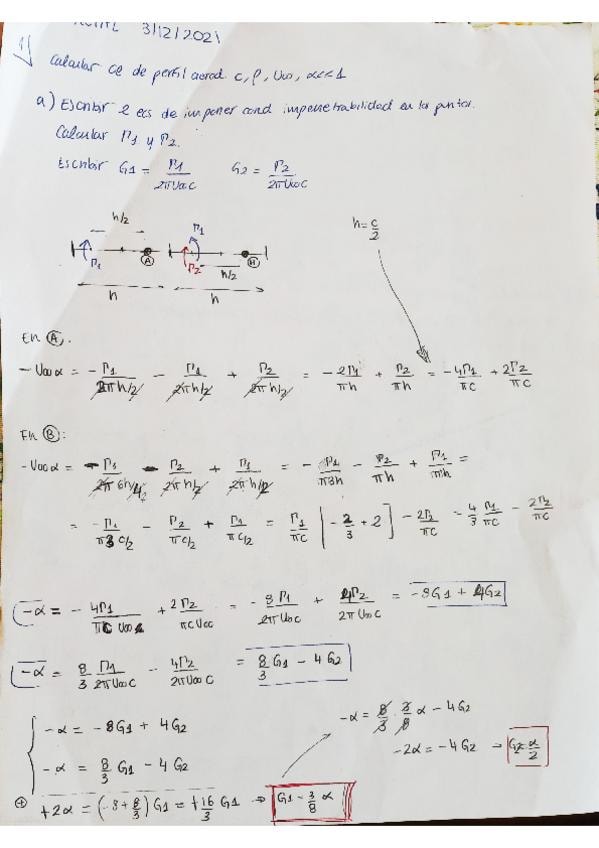 3/12/2021
1) Calcular ce de perfil aerod. c, ρ, U∞, α<<1
a) Escribir 2 ecs de imponer cond impenetrabilidad en los puntos.
Calcular Γ1 y Γ2.
Escribir G1 = Γ1/2πU∞c G2 = Γ2/2πU∞c
h/2 Γ1 h = c/2
Γ1 A Γ2 h/2 B
h h
En A.
-U∞α = -Γ1/2πh/2 - Γ1/2πh/2 + Γ2/2πh/2 = -2Γ1/πh + Γ2/πh = -4Γ1/πc + 2Γ2/πc
En B:
-U∞α = -Γ1/2π6h/4 - Γ2/2πh/2 + Γ1/2πh/2 = -Γ1/π3h - Γ2/πh + Γ1/πh =
= -Γ1/π3c/2 - Γ2/πc/2 + Γ1/πc/2 = Γ1/πc [-2/3 + 2] - 2Γ2/πc = 4/3 Γ1/πc - 2Γ2/πc
-α = -4Γ1/πcU∞ + 2Γ2/πcU∞ = -8Γ1/2πU∞c + 4Γ2/2πU∞c = -8G1 + 4G2
-α = 8/3 Γ1/2πU∞c - 4Γ2/2πU∞c = 8/3 G1 - 4G2
-α = -8G1 + 4G2
-α = 8/3 · 3/8 α - 4G2
-2α = -4G2 → G2 = α/2
-α = 8/3 G1 - 4G2
+ +2α = (-8+8/3)G1 = +16/3 G1 ⇒ G1 = 3/8 α